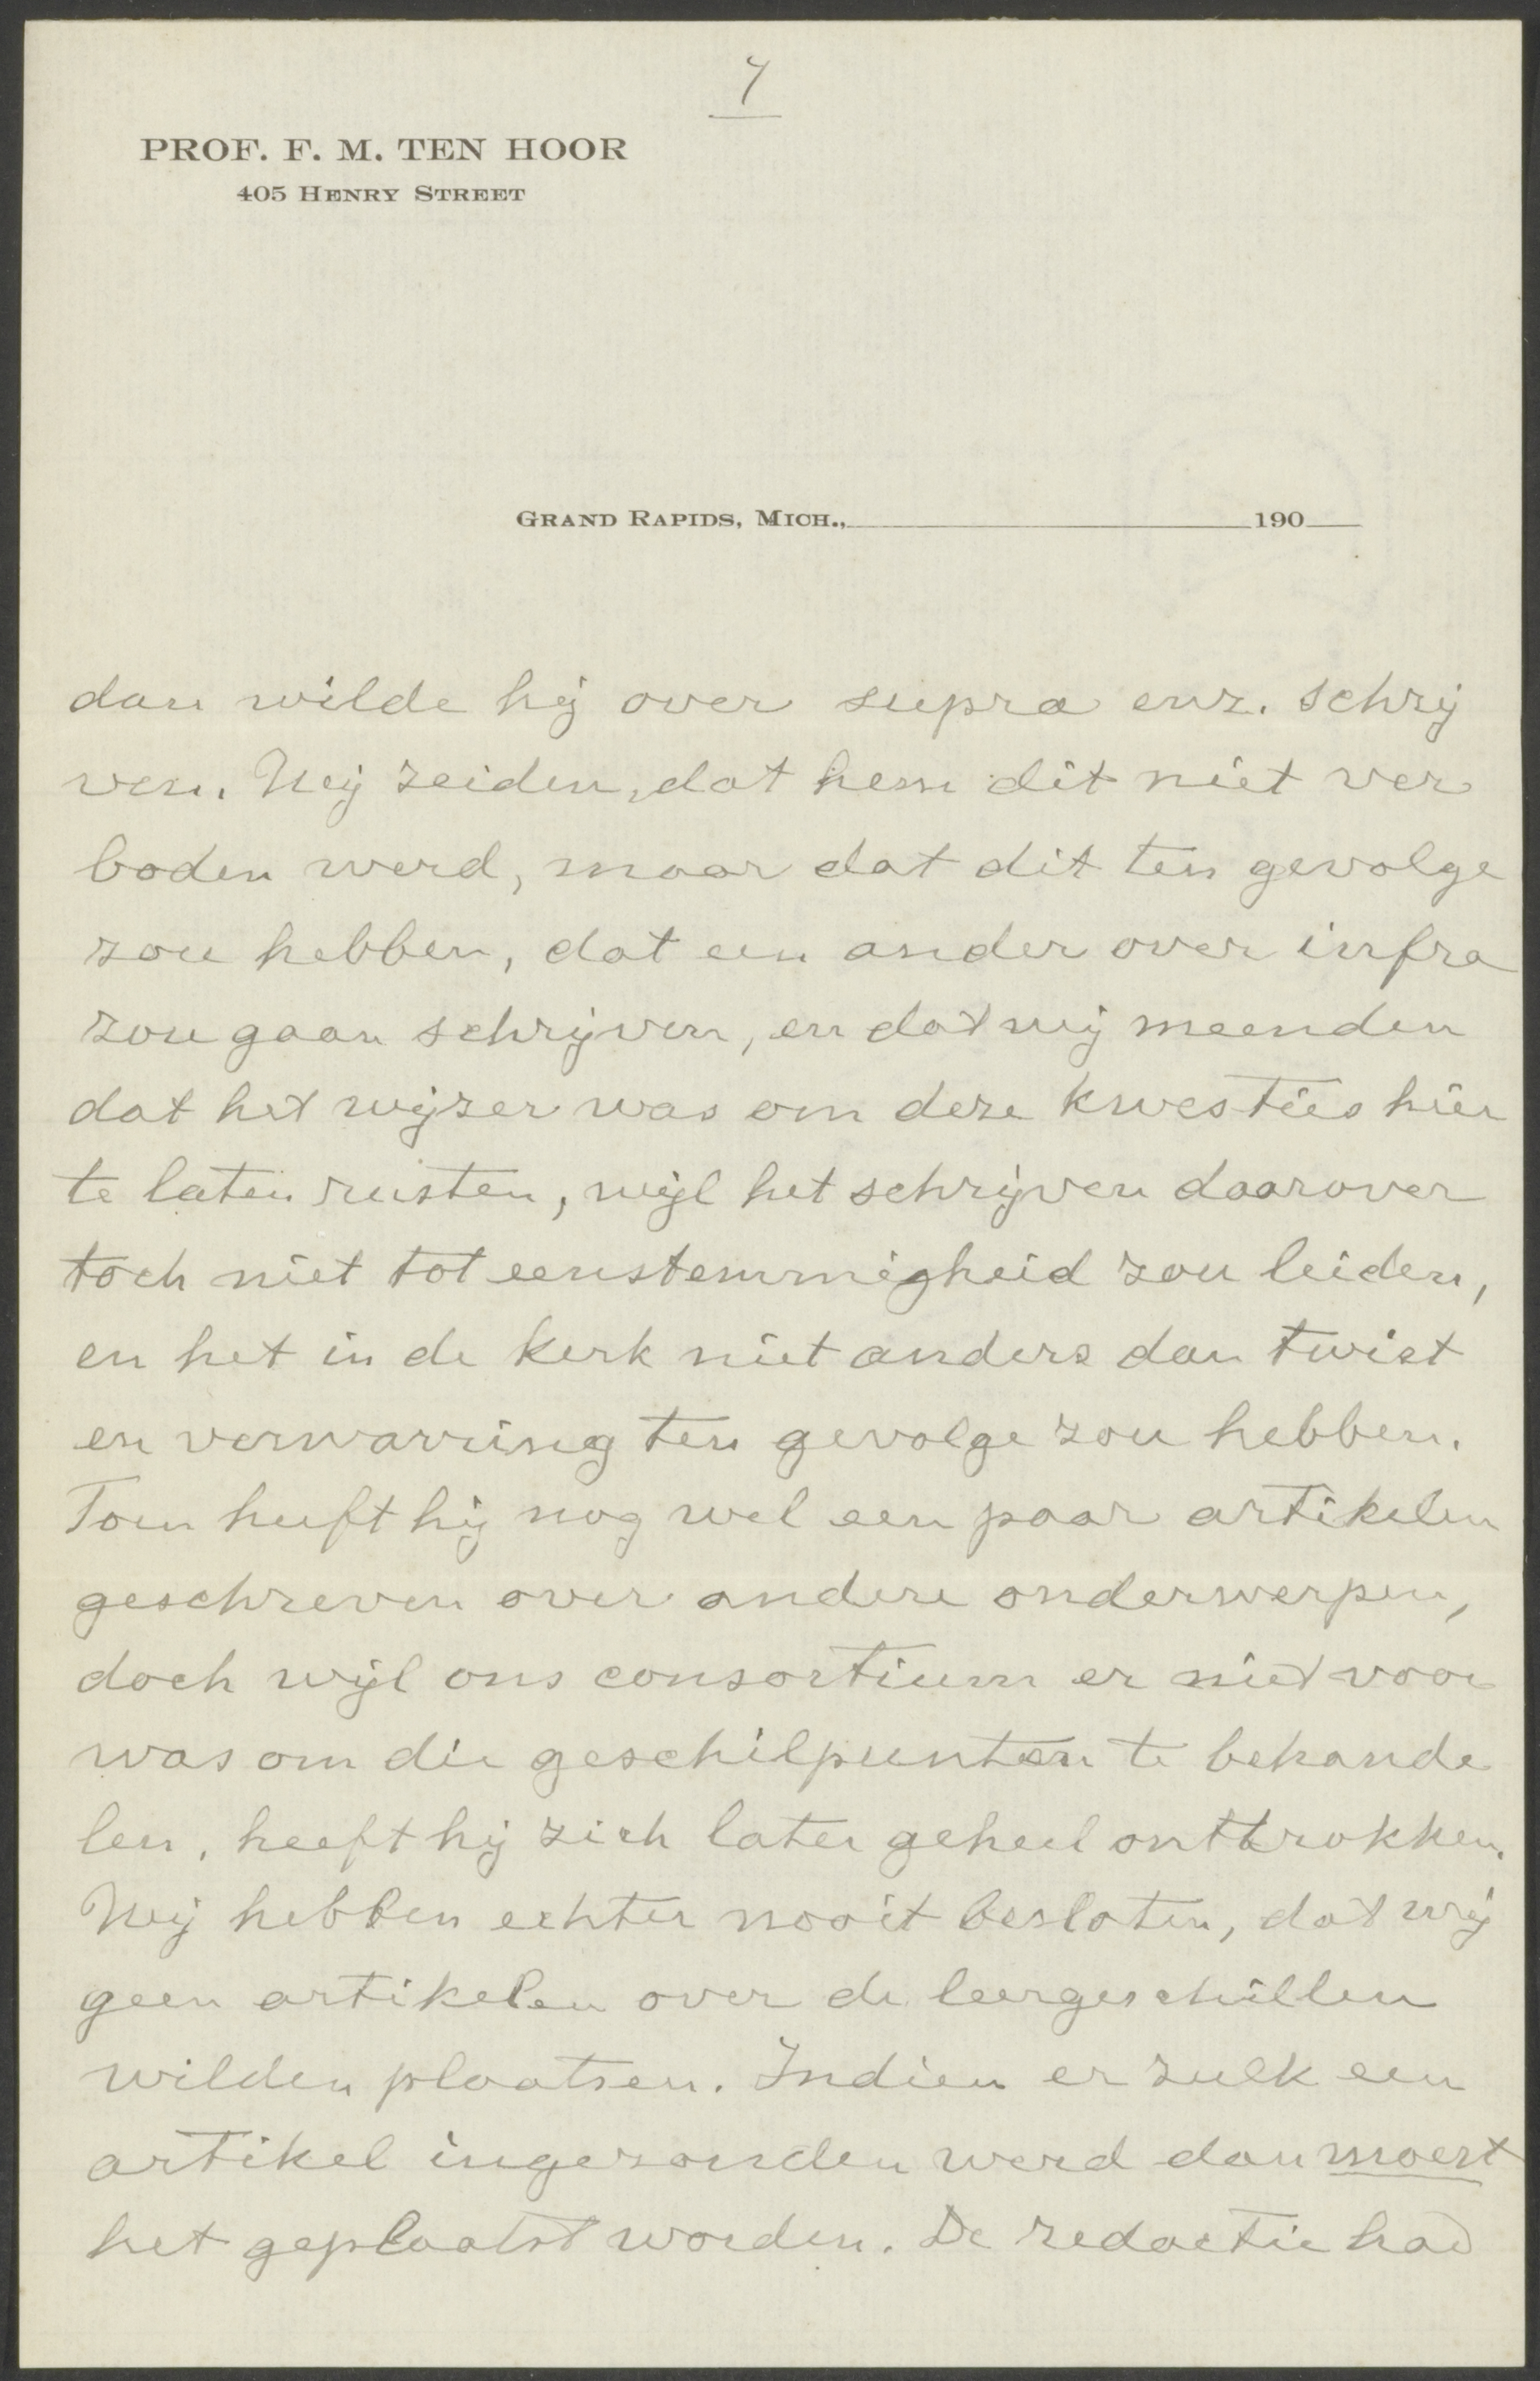 7
PROF. F. M. TEN HOOR
405 HENRY STREET
GRAND RAPIDS, MICH., 190
dan wilde hij over supra enz. schrij
ven. Wij zeiden, dat hem dit niet ver
boden werd, maar dat dit ten gevolge
zou hebben, dat een ander over infra
zou gaan schrijven, en dat wij meenden
dat het wijzer was om deze kwesties hier
te laten rusten, wijl het schrijven daarover
toch niet tot eenstemmigheid zou leiden,
en het in de kerk niet anders dan twist
en verwarring ten gevolge zou hebben.
Toen heeft hij nog wel een paar artikelen
geschreven over andere onderwerpen,
doch wijl ons consortium er niet voor
was om die geschilpunten te behande
len, heeft hij zich later geheel onttrokken.
Wij hebben echter nooit besloten, dat wij
geen artikelen over de leergeschillen
wilden plaatsen. Indien er zulk een
artikel ingezonden werd dan moest
het geplaatst worden. De redactie had